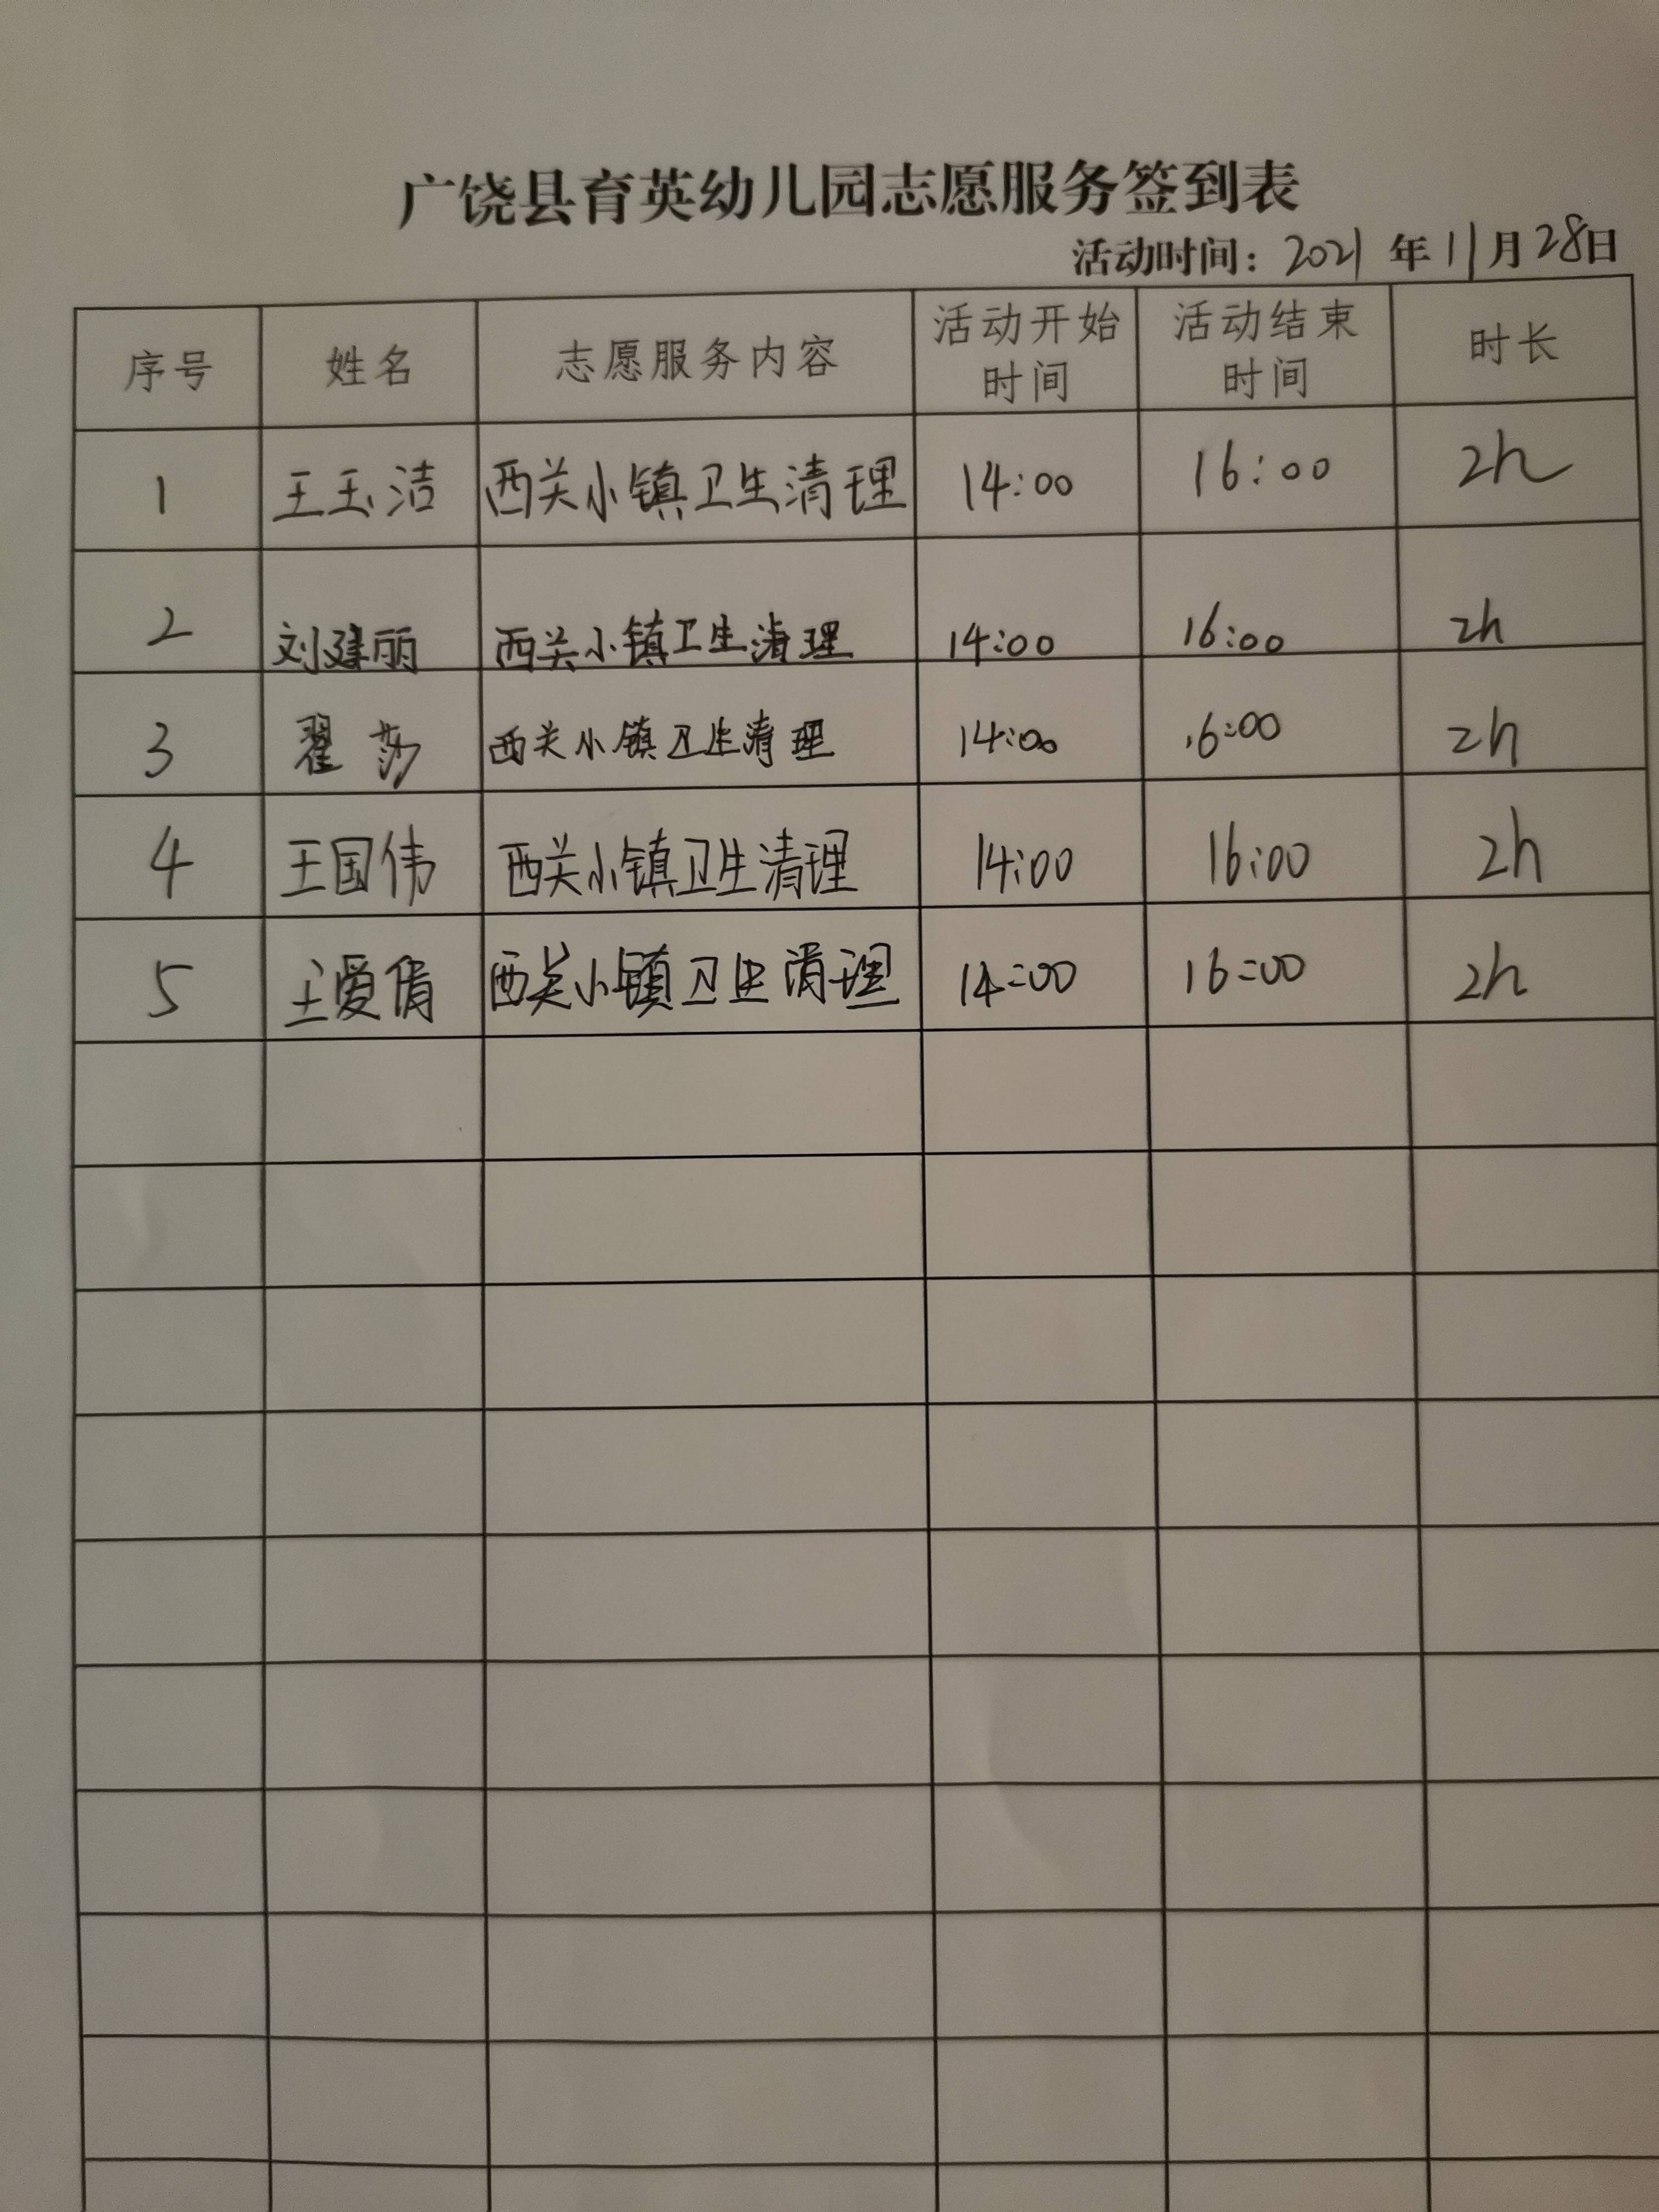 广饶县育英幼儿园志愿服务签到表
活动时间：2021 年 11月 28日
序号 姓名 志愿服务内容 活动开始时间 活动结束时间 时长
1 王玉洁 西关小镇卫生清理 14:00 16:00 2h
2 刘建丽 西关小镇卫生清理 14:00 16:00 2h
3 翟 西关小镇卫生清理 14:00 16:00 2h
4 王国伟 西关小镇卫生清理 14:00 16:00 2h
5 王爱倩 西关小镇卫生清理 14:00 16:00 2h